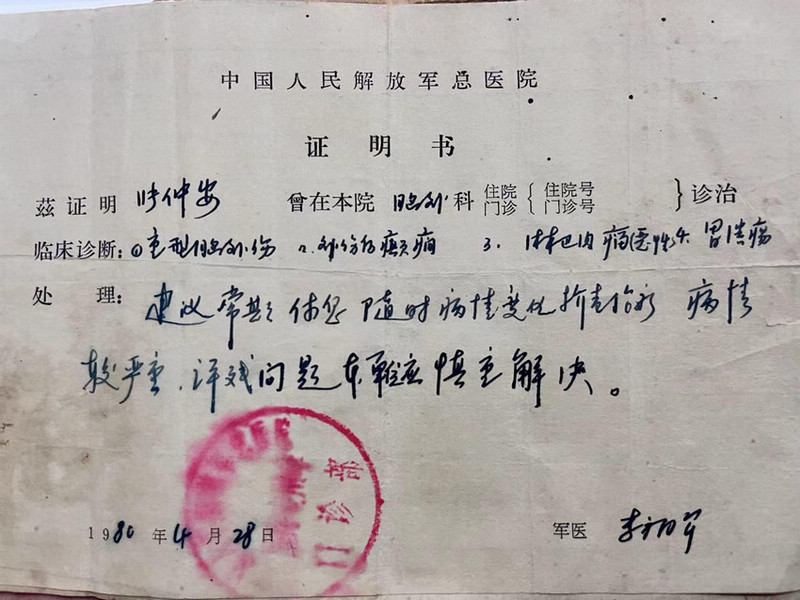 中国人民解放军总医院
证明书
兹证明 仲安 曾在本院 脑外 科 住院 门诊 { 住院号 门诊号 } 诊治
临床诊断: ①重型脑外伤 2. 外伤后癫痫 3. 淋巴肉瘤 4. 胃溃疡
处 理: 建议常期休息 随时病情变化 病情
较严重、评残问题 应慎重解决。
门诊部
1980 年 4 月 28 日 军医 李